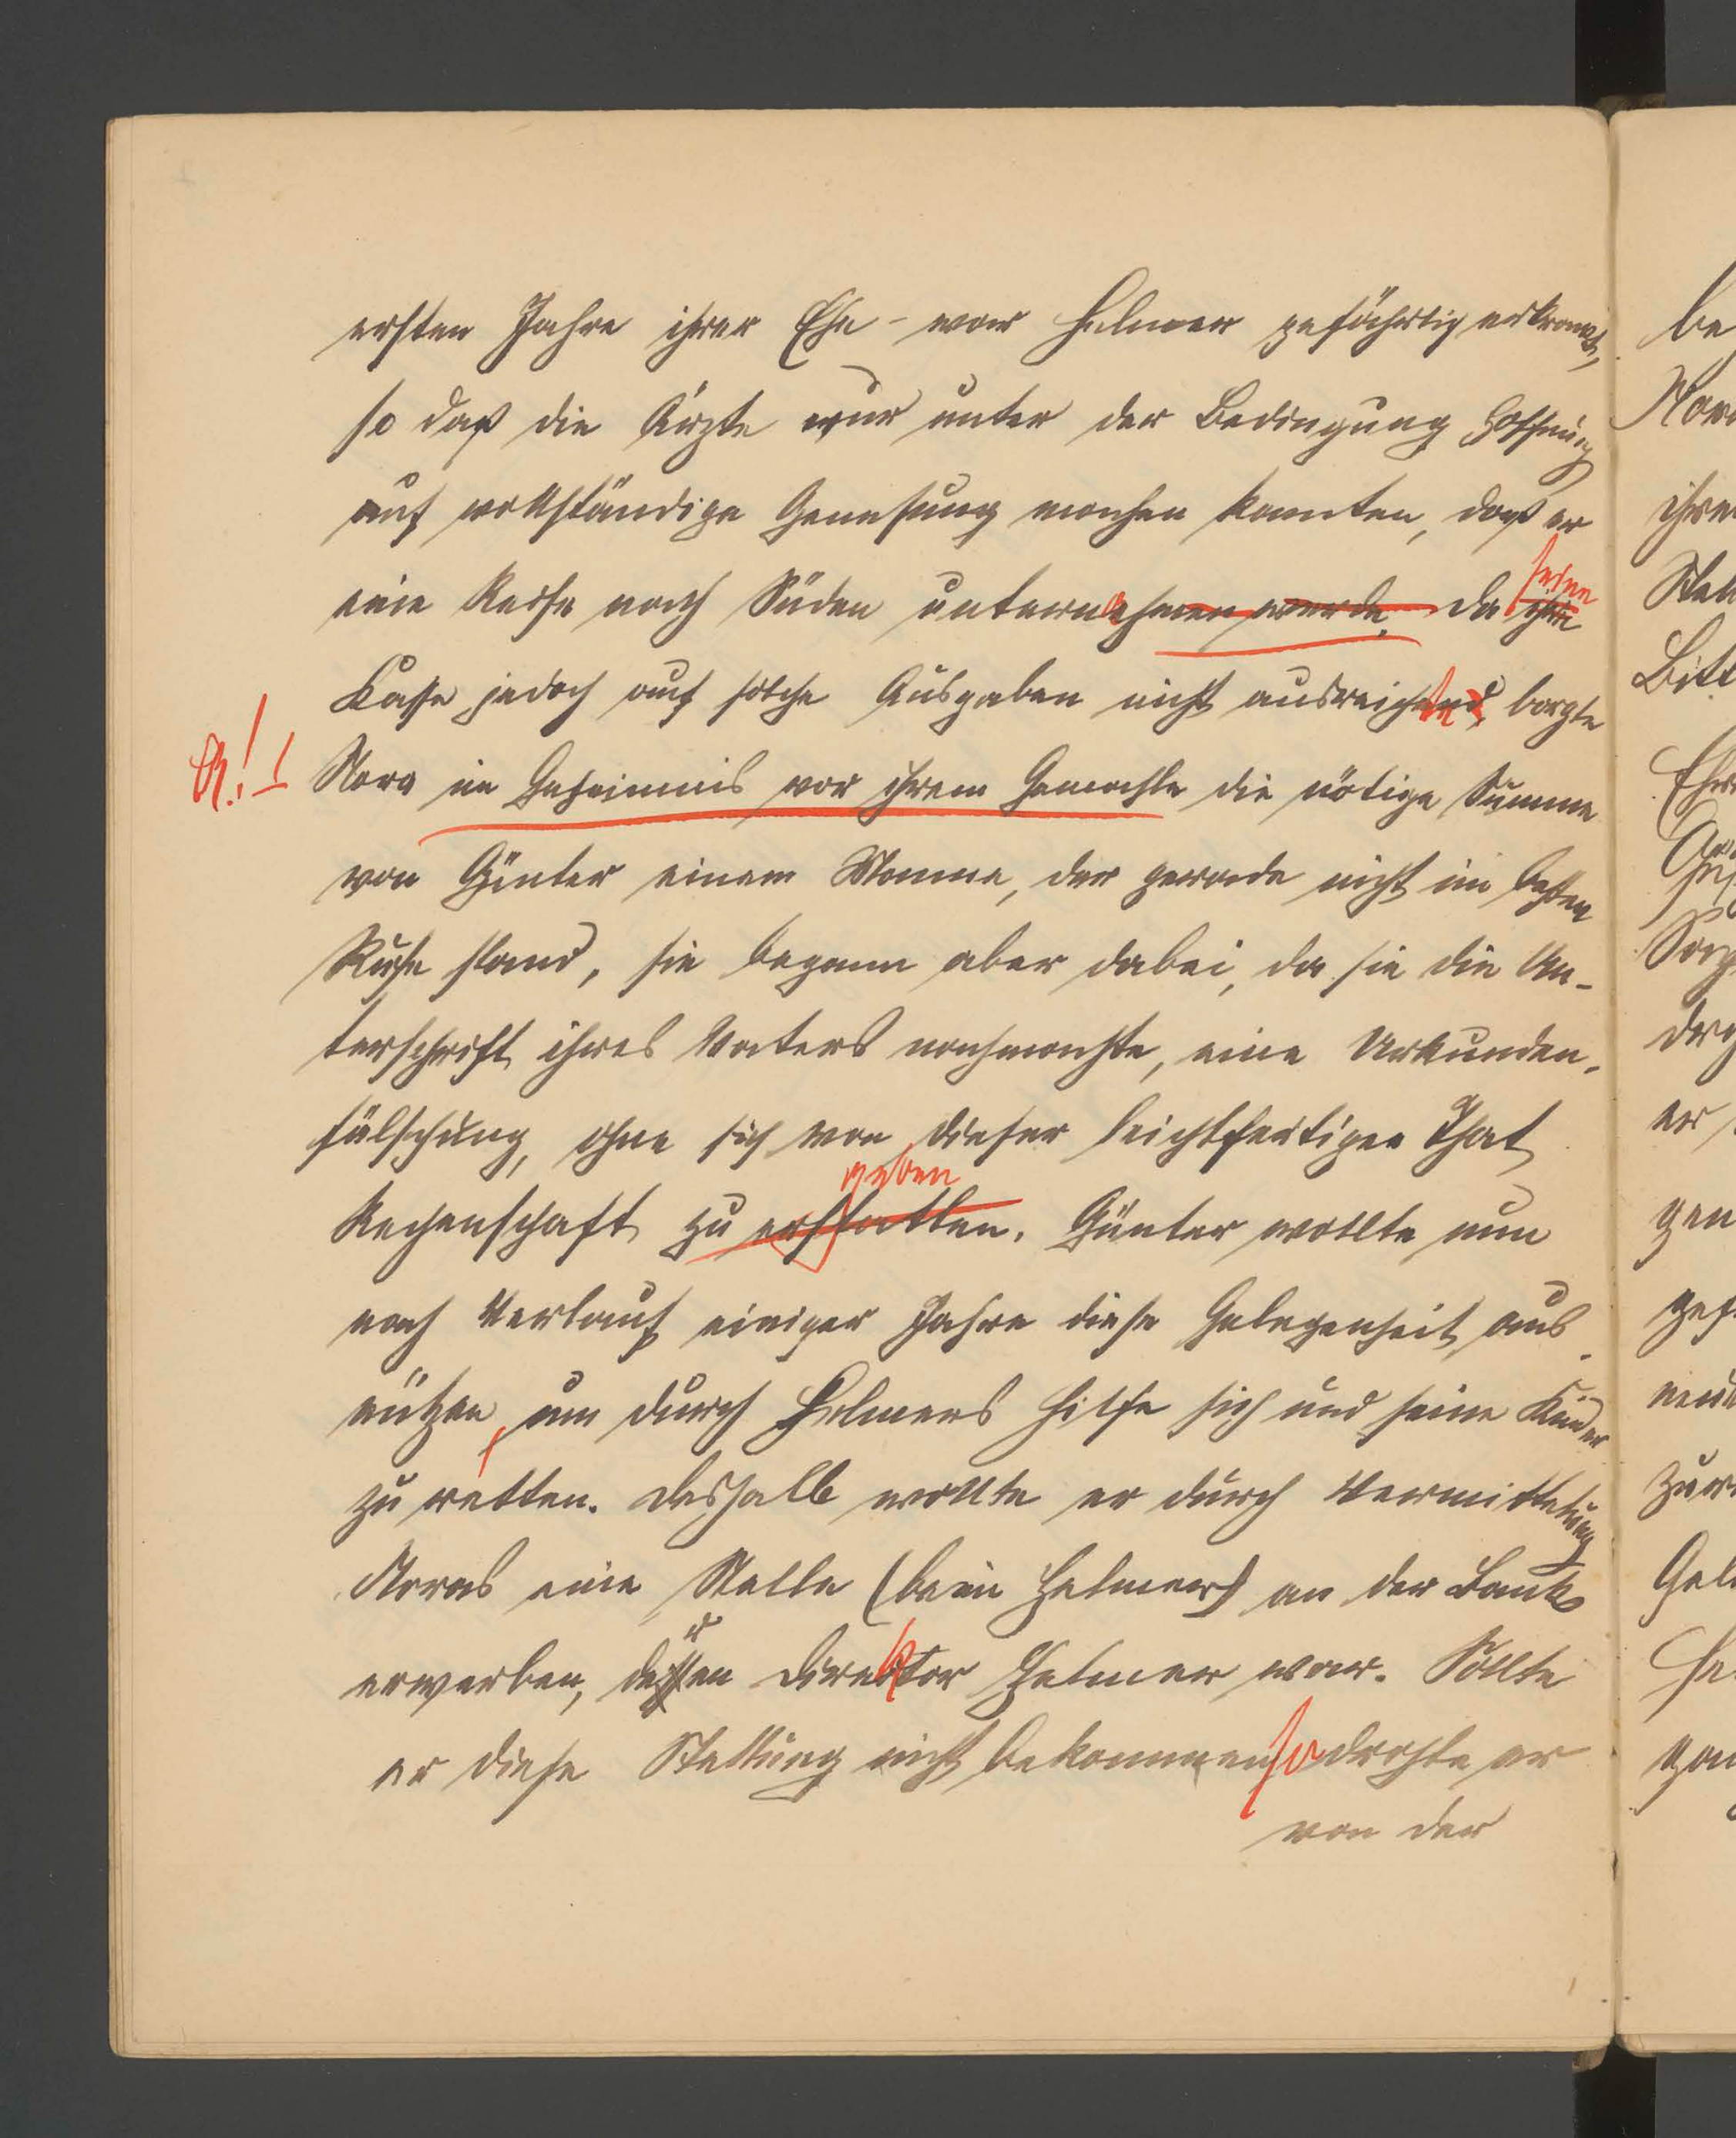 ersten Jahre ihrer Ehe – war Helmer gefährlich erkrankt,
so daß die Ärzte nur unter der Bedingung Hoffnung
auf vollständige Genesung machen konnten, daß er
seine
eine Reise nach Süden unternehmen werde. Da ihre
Kasse jedoch auf solche Ausgaben nicht ausreichend, borgte
R.! Nora im Geheimnis vor ihrem Gemahle die nötige Summe
von Günter einem Manne, der gerade nicht im besten
Rufe stand, sie begann aber dabei, da sie die Un-
terschrift ihres Vaters nachmachte, eine Urkunden-
fälschung, ohne sich von dieser leichtfertigen That
geben
Rechenschaft zu erstatten. Günter wollte nun
nach Verlauf einiger Jahre diese Gelegenheit aus-
nützen, um durch Helmers Hilfe sich und seine Kinder
zu retten. Deshalb wollte er durch Vermittelung
Noras eine Stelle (beim Helmer) an der Bank
erwerben, deren Direktor Helmer war. Sollte
er diese Stellung nicht bekommen so drohte er
von der
be
Nor
ihre
Stell
Bitt
er
gen
zur
Gel